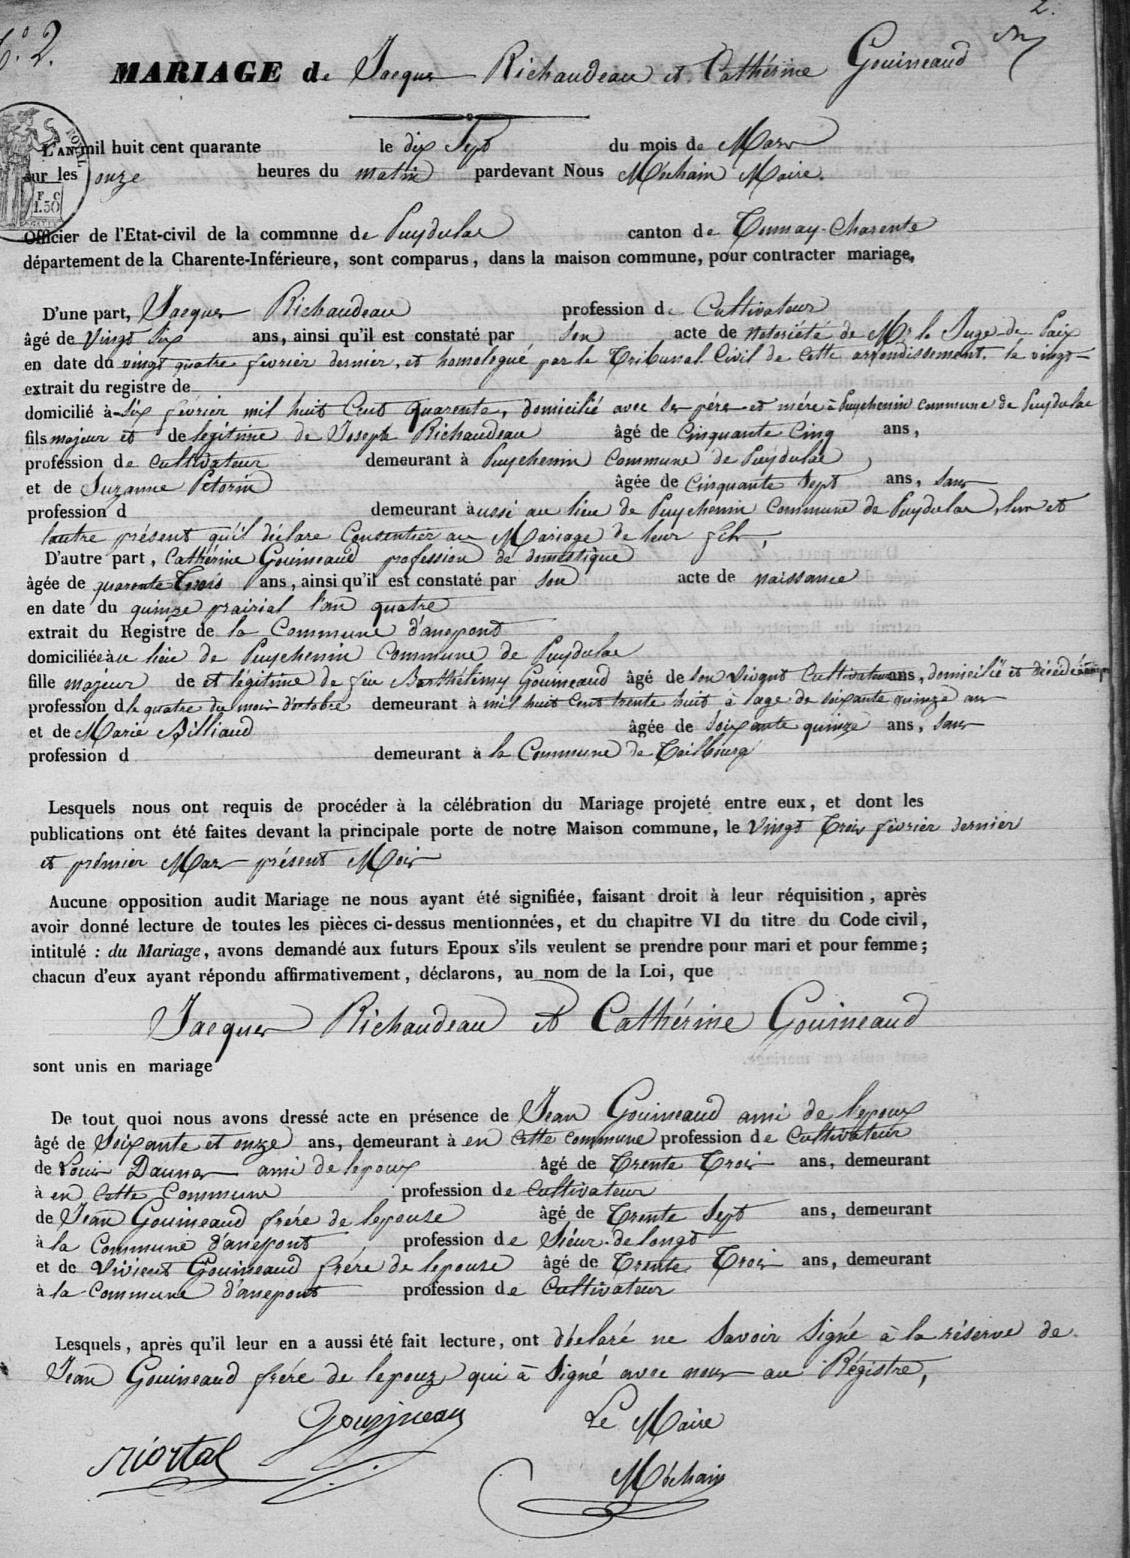 2.
N.º 2.
MARIAGE de Jacques Richaudeau et Cathérine Gouineaud
L'AN mil huit cent quarante le dix Sept du mois de Mars
sur les onze heures du matin pardevant Nous Méchain Maire.
Officier de l'Etat-civil de la commnne de Puydulac canton de Tonnay-Charente
département de la Charente-Inférieure, sont comparus, dans la maison commune, pour contracter mariage,
D'une part, Jacques Richaudeau profession de Cultivateur
âgé de Vingt Six ans, ainsi qu'il est constaté par son acte de notoriété de Mr le Juge de Paix
en date du vingt quatre février dernier, et homologué par le Tribunal Civil de Cette arrondissement. le vingt-
extrait du registre de
domicilié à-six février mil huit Cent quarente, domicilié avec ses pére et mére à Puychenin commune de Puydulac
fils majeur et de legitime de Joseph Richaudeau âgé de Cinquante Cinq ans,
profession de cultivateur demeurant à Puychenin Commune de Puydulac,
et de Suzanne Petorin âgée de Cinquante Sept ans, sans
profession d demeurant àussi au lieu de Puychenin Commune de Puydulac, lun et
lautre présent qu'il déclare Consentier au Mariage de leur fils,
D'autre part, Cathérine Gouineaud profession de domestique
âgée de quarente Trois ans, ainsi qu'il est constaté par son acte de naissance
en date du quinze prairial l'an quatre
extrait du Registre de la Commune d'anepont
domiciliée àu lieu de Puychenin Commune de Puydulac
fille majeur de et legitime de feu Barthélémy Gouineaud âgé de son vivant Cultivateur ans, domicilié et décédé
profession d le quatre du mois doctobre demeurant à mil huit Cent trente huit à lage de soixante quinze ans
et de Marie Billiaud âgée de soixante quinze ans, sans
profession d demeurant à la Commune de Tailbourg
Lesquels nous ont requis de procéder à la célébration du Mariage projeté entre eux, et dont les
publications ont été faites devant la principale porte de notre Maison commune, le Vingt Trois février dernier
et prémier Mars présent Mois
Aucune opposition audit Mariage ne nous ayant été signifiée, faisant droit à leur réquisition, après
avoir donné lecture de toutes les pièces ci-dessus mentionnées, et du chapitre VI du titre du Code civil,
intitulé : du Mariage, avons demandé aux futurs Epoux s'ils veulent se prendre pour mari et pour femme;
chacun d'eux ayant répondu affirmativement, déclarons, au nom de la Loi, que
Jacques Richaudeau et Cathérine Gouineaud
sont unis en mariage
De tout quoi nous avons dressé acte en présence de Jean Gouineaud ami de lepoux
âgé de Soixante et onze ans, demeurant à en Cette commune profession de Cultivateur
de Louis Daunas ami de lepoux âgé de Trente Trois ans, demeurant
à en Cette Commune profession de Cultivateur
de Jean Gouineaud frére de lepouse âgé de Trente Sept ans, demeurant
à la Commune d'anepont profession de Sieur de longt
et de Vivient Gouineaud frére de lepouse âgé de Trente Trois ans, demeurant
à la Commune d'anepont profession de Cultivateur
Lesquels, après qu'il leur en a aussi été fait lecture, ont déclaré ne Savoir Signé à la réserve de
Jean Gouineaud frére de lepouz qui à Signé avec nous au Régistre,
Gouineau Le Maire
Méchain